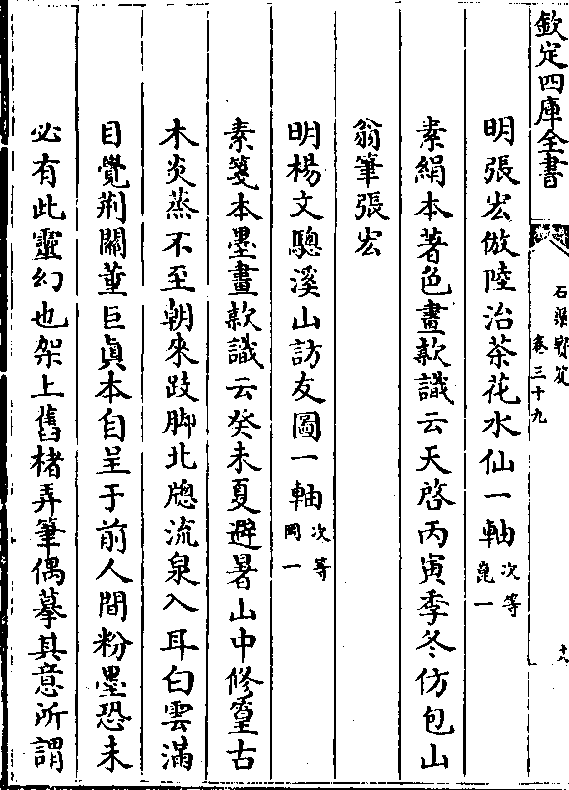 欽定四庫全書
石渠寶笈
卷三十九
十八
明張宏倣陸治茶花水仙一軸次等崑一
素絹本著色畫款識云天啓丙寅季冬仿包山
翁筆張宏
明楊文驄溪山訪友圖一軸次等岡一
素箋本墨畫款識云癸未夏避暑山中修篁古
木炎蒸不至朝來跂脚北牕流泉入耳白雲滿
目覺荆關董巨眞本自呈于前人間粉墨恐未
必有此靈幻也架上舊楮弄筆偶摹其意所謂